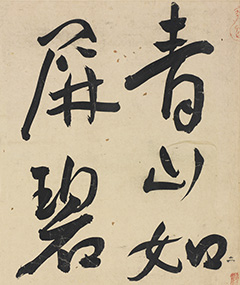 青山如
屏碧